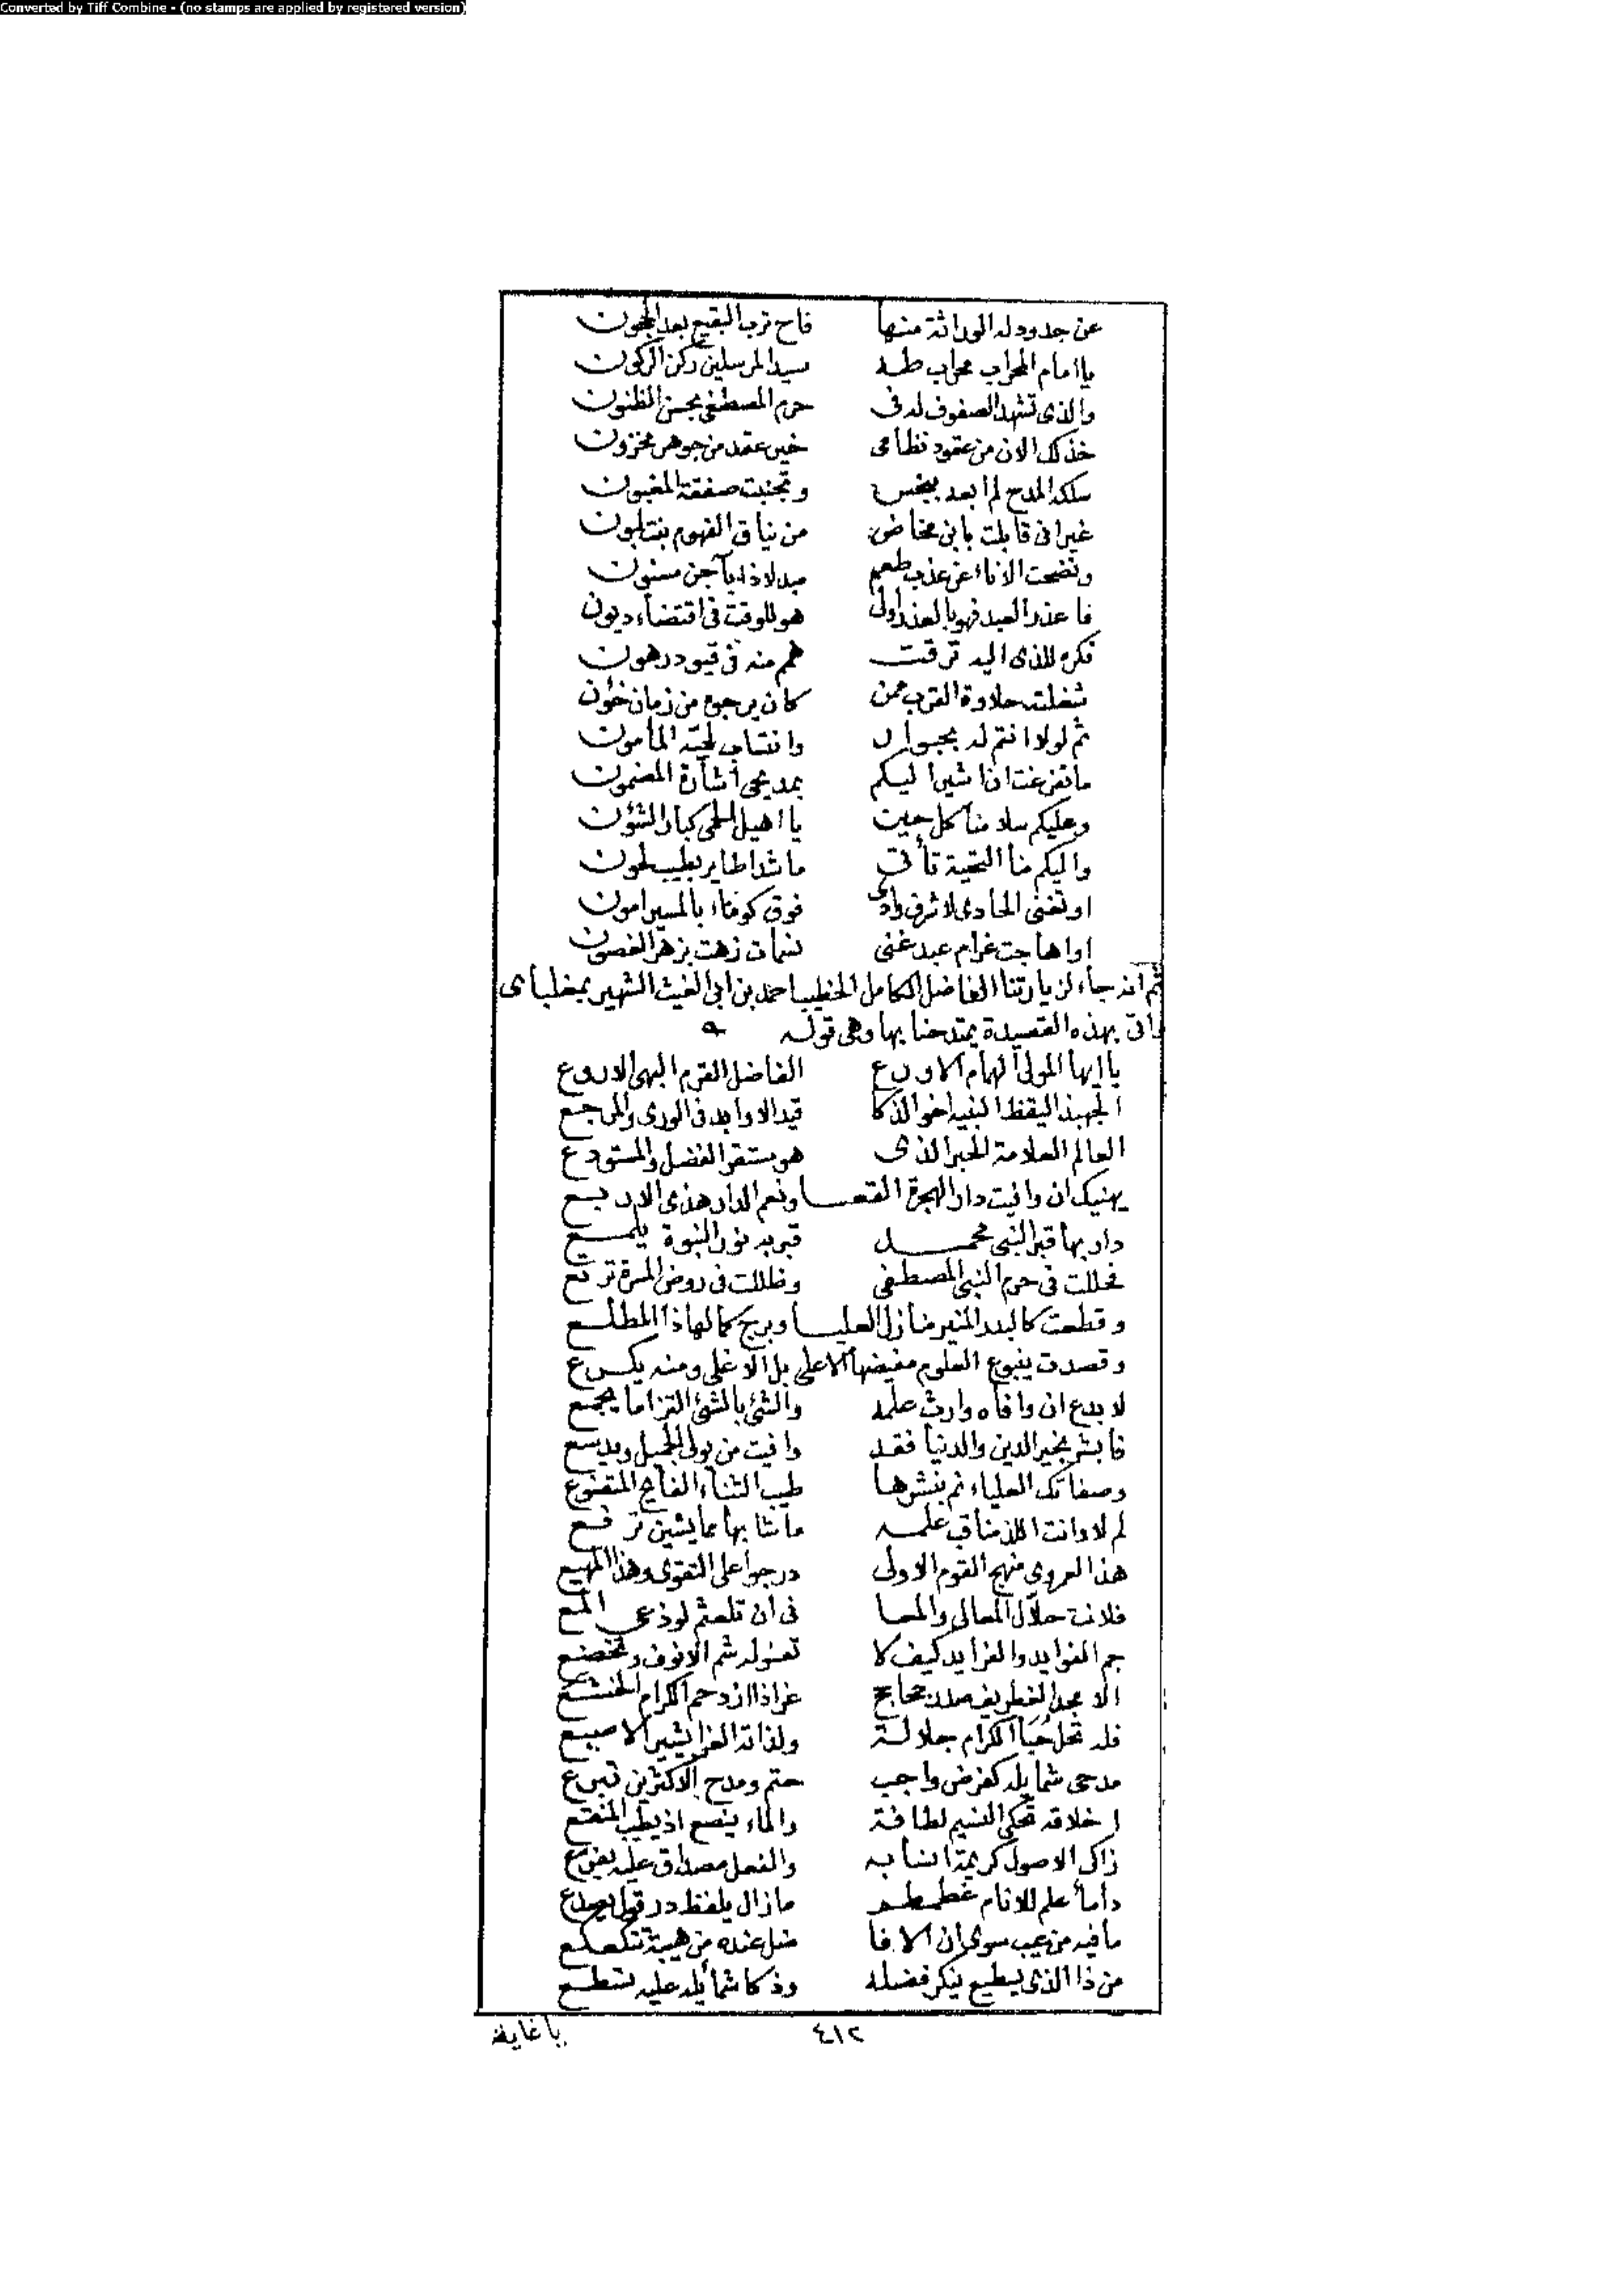 Converted by Tiff Combine - (no stamps are applied by registered version)
عن جدود له الوراثة منها فاح ترب البقيع بعد الحجون
ياامام المحراب محراب طه سيد المرسلين ركن الركون
والذى تشهد الصفوف له فى حرم المصطفى بحسن الظنون
خذ لك الان من عقود نظامى خير عقد من جوهر مخزون
سلكه المدح لم ابعه ببخس وتجنبت صفقة المغبون
غير انى قابلت بابن مخاض من نياق الفهوم بنت لبون
ونضحت الاناء عن عذب طعم مبدلا ذا بآجن مسنون
فاعذر العبد فهو بالعذر اولى هو للوقت فى اقتضاء ديون
فكره للذى اليه ترقت همم منه فى قيود رهون
شغلته حلاوة القرب ممن كان يرجوه من زمان خؤن
ثم لولا انتم له بجوار وانتساب لحبه المأمون
ما تفرغت ان اشير اليكم بمديحى اشارة المضمون
وعليكم سلامنا كل حين يا اهيل الحمى كبار الشؤن
واليكم منا التحية تأتى ما شدا طاير بطيب لحون
او تغنى الحادى لاشرف وادى فوق كوماء بالمسير امون
اوا هاجت غرام عبد غنى نسمات زهت بزهر الغصون
ثم انه جاء لزيارتنا الفاضل الكامل الخطيب احمد بن ابى الغيث الشهير بمغلباى
واتى بهذه القصيدة يمتدحنا بها وهى قوله
ياايها المولى الهمام الاورع الفاضل القرم البهى الاروع
الجهبذ اليقظ النبيه اخو الذكا قيد الاوابد فى الورى والمرجع
العالم العلامة الحبر الذى هو مستقر الفضل والمستودع
يهنيك ان وافيت دار الهجرة القعسا ونعم الدار هذى الاربع
دار بها قبر النبى محمد قبر به نور النبوة يلمع
فحللت فى حرم النبى المصطفى وظللت فى روض المسرة ترتع
وقطعت كالبدر المنير منازل العليا وبرج كمالها ذا المطلع
وقصدت ينبوع العلوم مفيضها الاعلى بل الاغلى ومنه يكرع
لا بدع ان وافاه وارث علمه والشئ بالشئ التزاما يجمع
فابشر بخير الدين والدنيا فقد وافيت من يولى الجميل ويدسع
وصفاتك العلياء نم بنشرها طيب الثناء الفايح المتضوع
لم لا وانت اللذ مناقب علمه مانتا بها عما يشين ترفع
هذا لعمرى منهج القوم الاولى درجوا على التقوى وهذا المهيع
فلانت حلال المعالى والمعا نى ان تلعثم لوذعى المع
جم الفوايد والفرايد كيف لا تعنو له شم الانوف وتخضع
الامجد الغطريف صدر جحاجح غر اذا ازدحم الكرام الخشع
فله تحل حبا الكرام جلالة ولذاته الغرا يشير الاصبع
مدحى شمايله كفرض واجب حتم ومدح الاكثرين تبرع
اخلاقه تحكى النسيم لطافة والماء ينصع اذ يطيب المنقع
زاكى الاصول كريمة انسابه والفعل مصداق عليه يفرع
دأماء علم للانام غطمطم مازال يلفظ در قول يصدع
ما فيه من عيب سوى ان الافا ضل عنده من هيبة تتكعكع
من ذا الذى يسطيع ينكر فضله وذكا شمائله عليه تسطع
٤١٢
ياغاية